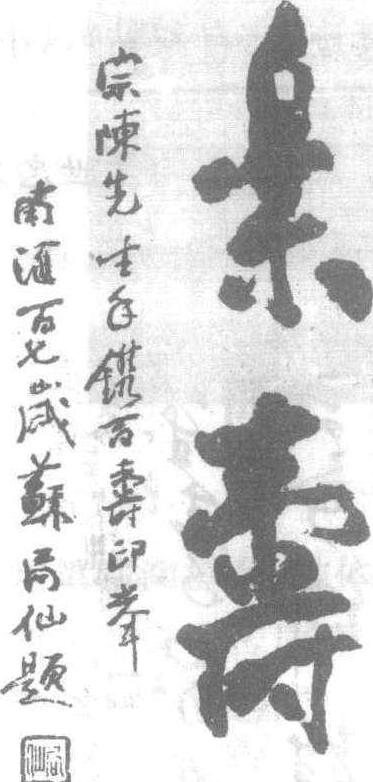 樂壽
宗陳先生手鐫百壽印
南匯百七歲蘇局仙題